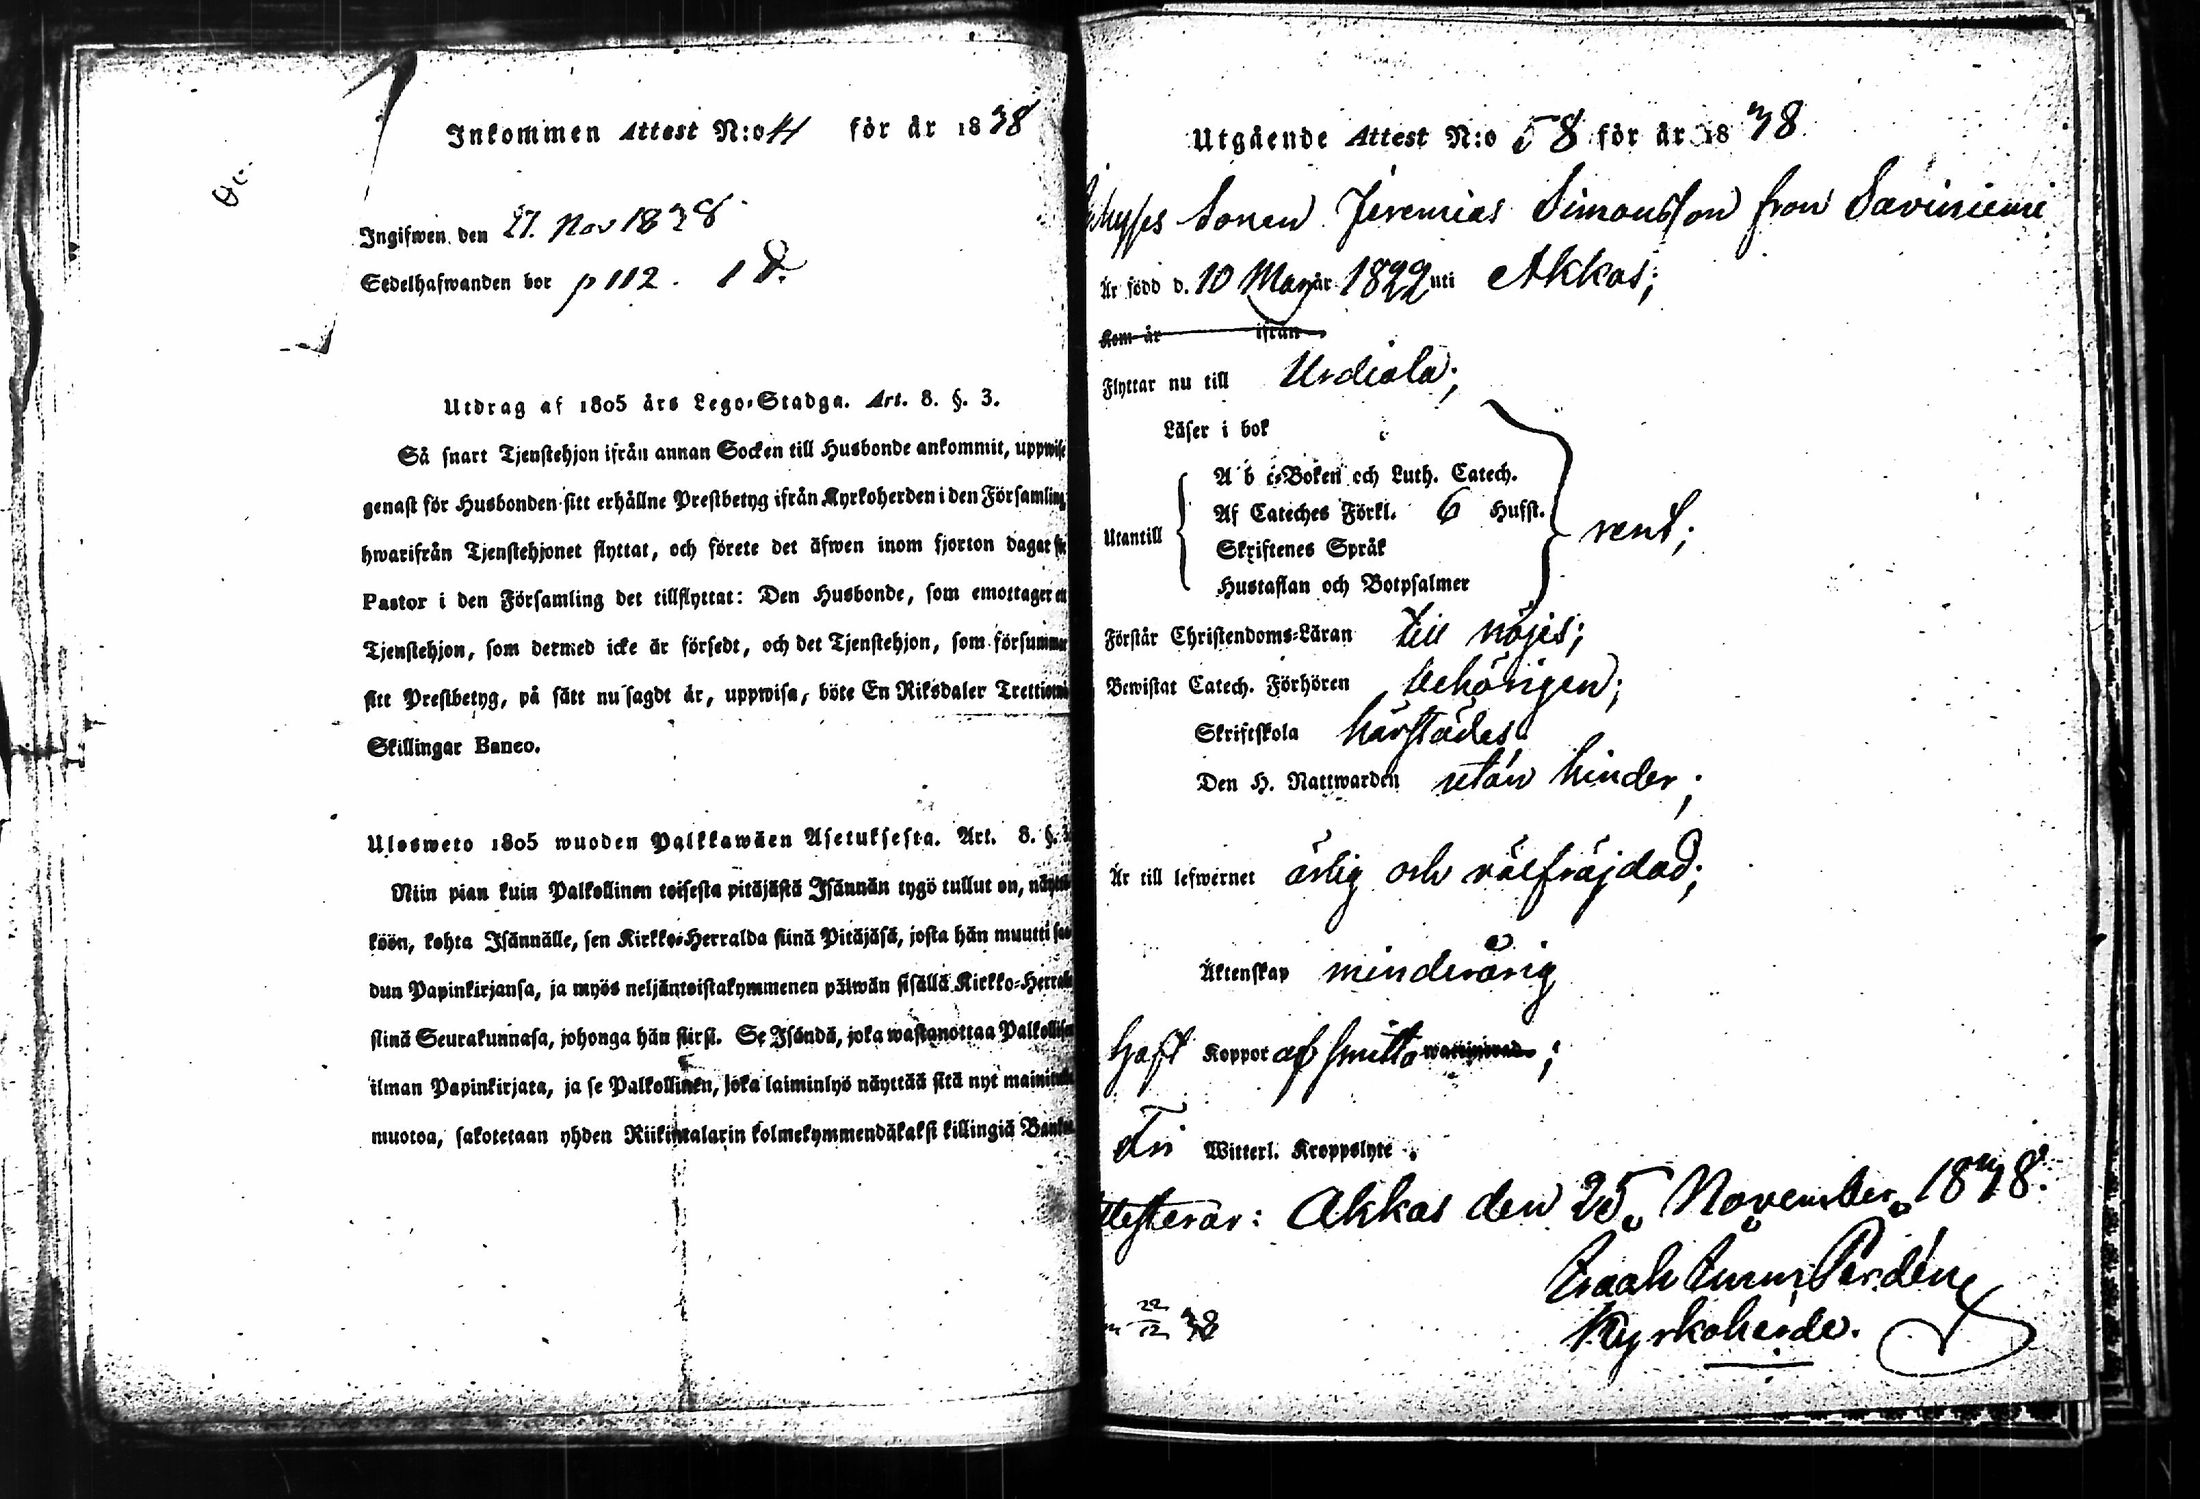 Inkommen Attest N:o 41 för år 1838
Ingifwen den 27. Nov 1838.
Sedelhafwanden bor p 112.
Utdrag af 1805 års Lego-Stadga. Art. 8. §. 3.
Så snart Tjenstehjon ifrån annan Socken till Husbonde ankommit, uppwise
genast för Husbonden sitt erhållne Prestbetyg ifrån Kyrkoherden i den Församling
hwarifrån Tjenstehjonet flyttat, och förete det äfwen inom fjorton dagar för
Pastor i den Församling det tillflyttat: Den Husbonde, som emottager ett
Tjenstehjon, som dermed icke är försedt, och det Tjenstehjon, som försummar
sitt Prestbetyg, på sätt nu sagdt är, uppwisa, böte En Riksdaler Trettiotwå
Skillingar Banco.
Ulosweto 1805 wuoden Palkkawäen Asetuksesta. Art. 8. §. 3.
Niin pian kuin Palkollinen toisesta pitäjästä Isännän tygö tullut on, näyttä-
köön, kohta Isännälle, sen Kirkko-Herralda siinä Pitäjäsä, josta hän muutti saa-
dun Papinkirjansa, ja myös neljäntoistakymmenen päiwän sisällä Kirkko-Herralle
siinä Seurakunnasa, johonga hän siirsi. Se Isändä, joka wastanottaa Palkollisen
ilman Papinkirjata, ja se Palkollinen, joka laiminlyö näyttää sitä nyt mainitulla
muotoa, sakotetaan yhden Riikintalarin kolmekymmendäkaksi killingiä Bankos.
Utgående Attest N:o 58 för år 1838
Sonen Jeremias Simonsson från Saviniemi
Är född d. 10 Maj år 1822 uti Akkas;
Kom år ifrån
Flyttar nu till Urdiala;
Läser i bok
A b c-Boken och Luth. Catech.
Af Cateches Förkl. 6 Hufst.
Utantill rent;
Skriftenes Språk
Hustaflan och Botpsalmer
Förstår Christendoms-Läran till nöjes;
Bewistat Catech. Förhören behörigen;
Skriftskola härstädes
Den H. Nattwarden utan hinder;
Är till lefwernet ärlig och välfräjdad;
Äktenskap minderårig
Haft Koppor af smitto
Fri Witterl. Kroppslyte.
Attesterar: Akkas den 25. November 1838.
Kyrkoherde.
22/12 38